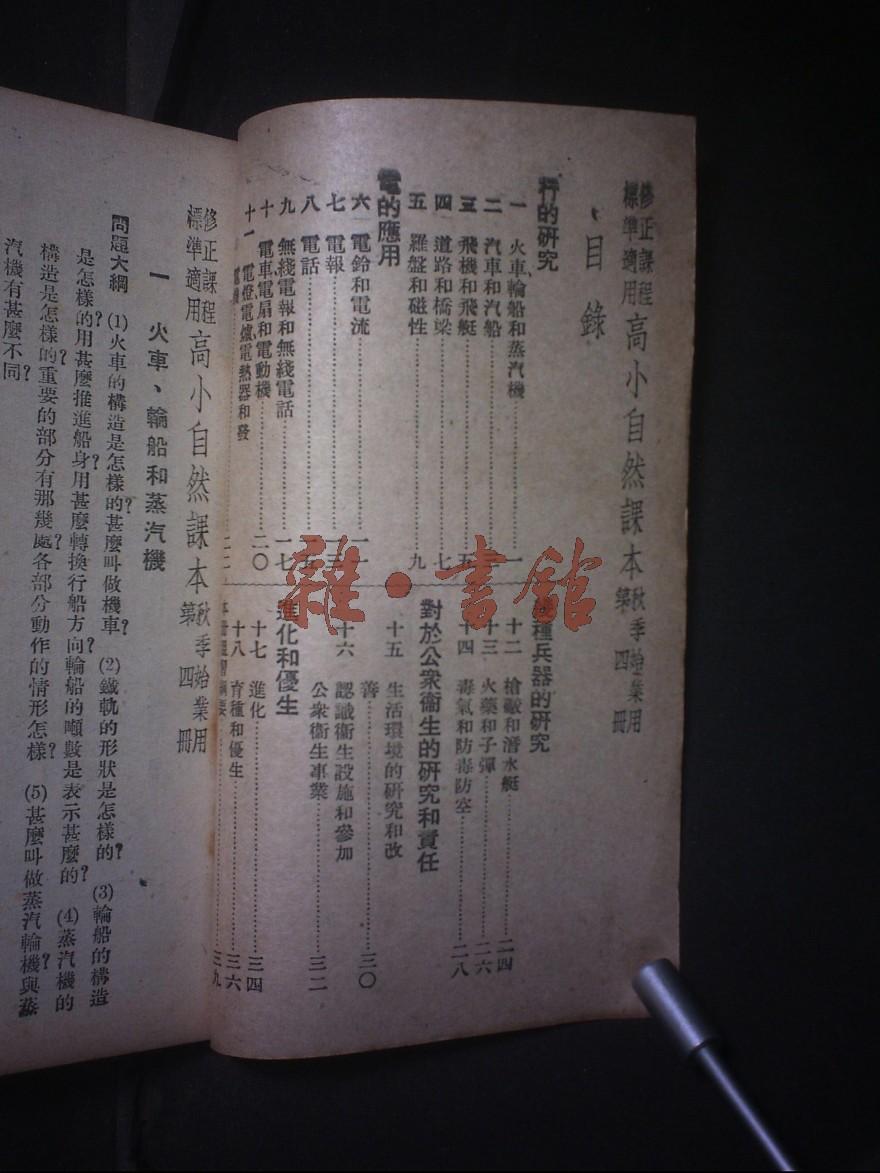 修正課程標準適用 高小自然課本 秋季始業用 第四冊
目錄
行的研究
一 火車、輪船和蒸汽機 一
二 汽車和汽船
三 飛機和飛艇 五
四 道路和橋梁 七
五 羅盤和磁性 九
電的應用
六 電鈴和電流 一一
七 電報 一三
八 電話 一五
九 無綫電報和無綫電話 一七
十 電車電扇和電動機 二〇
十一 電燈、電爐、電熱器和發電機 二二
種兵器的研究
十二 槍礮和潛水艇 二四
十三 火藥和子彈 二六
十四 毒氣和防毒防空 二八
對於公衆衞生的研究和責任
十五 生活環境的研究和改善 三〇
十六 認識衞生設施和參加公衆衞生事業 三二
進化和優生
十七 進化 三四
十八 育種和優生 三六
三九
雜·書館
修正課程標準適用 高小自然課本 秋季始業用 第四冊
一 火車、輪船和蒸汽機
問題大綱 (1)火車的構造是怎樣的?甚麼叫做機車? (2)鐵軌的形狀是怎樣的? (3)輪船的構造
是怎樣的?用甚麼推進船身?用甚麼轉換行船方向?輪船的噸數是表示甚麼的? (4)蒸汽機的
構造是怎樣的?重要的部分有那幾處?各部分動作的情形怎樣? (5)甚麼叫做蒸汽輪機?與蒸
汽機有甚麼不同?